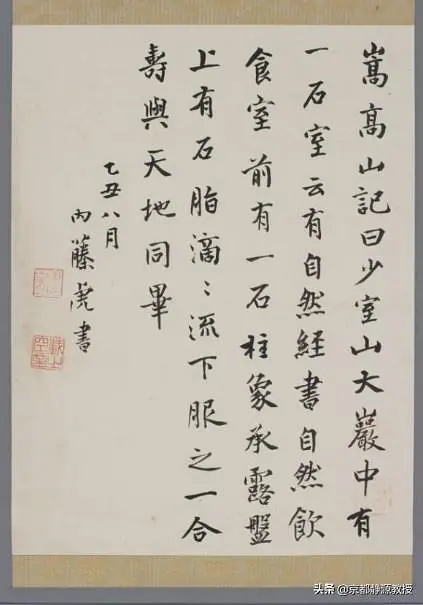 嵩高山記曰少室山大巖中有
一石室云有自然經書自然飲
食室前有一石柱象承露盤
上有石脂滴〻流下服之一合
壽與天地同畢
乙丑八月
內藤虎書
头条@京都静源教授